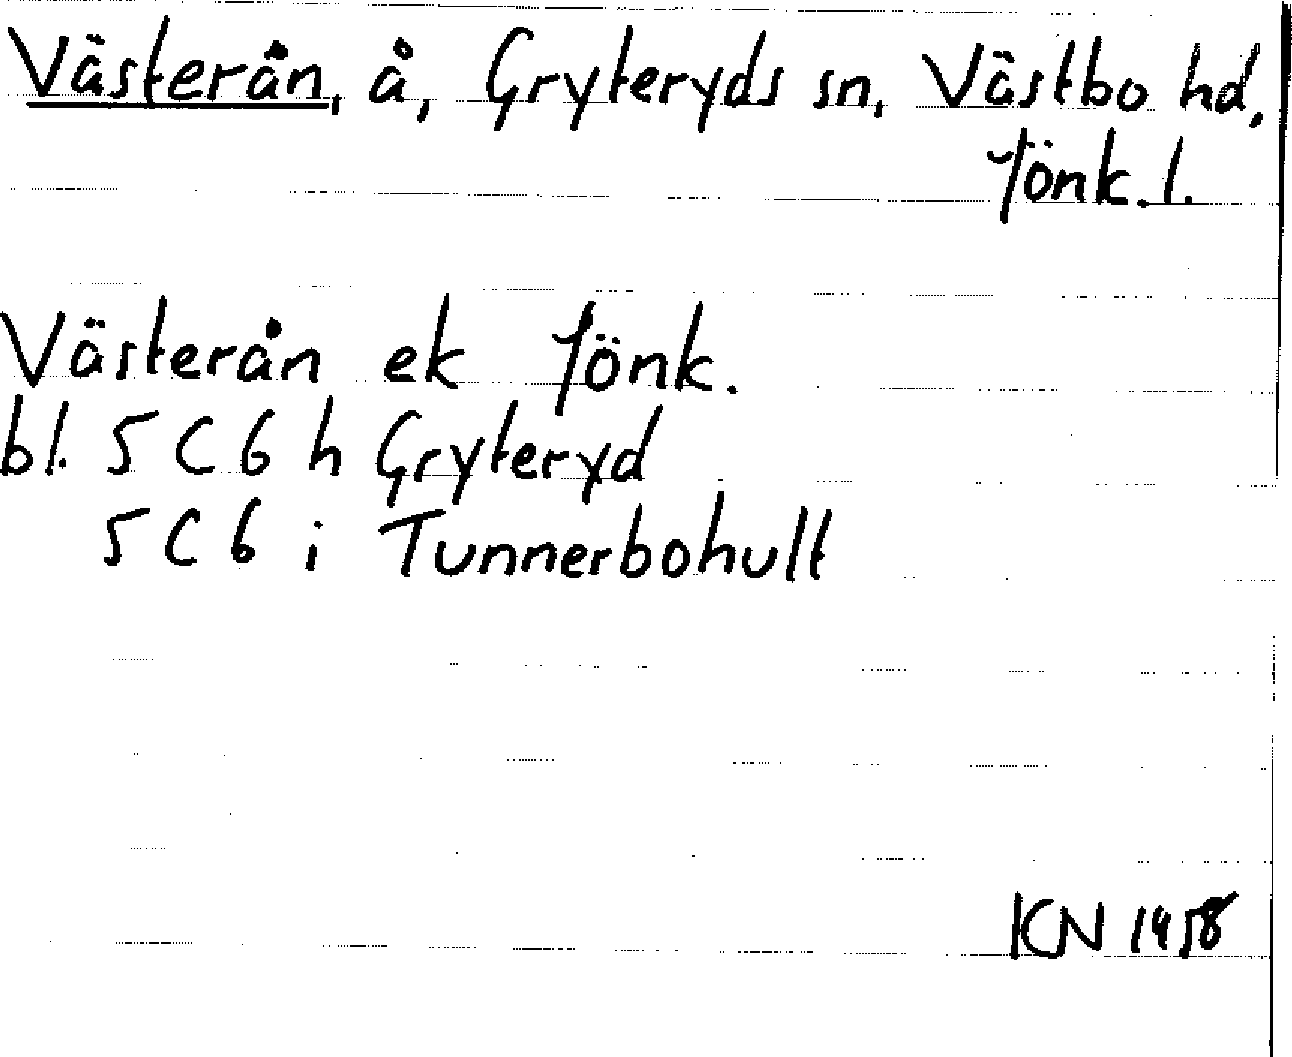 Västerån, å, Gryteryds sn, Västbo hd,
Jönk. l.
Västerån ek Jönk.
bl. 5 C 6 h Gryteryd
5 C 6 i Tunnerbohult
KN 1958